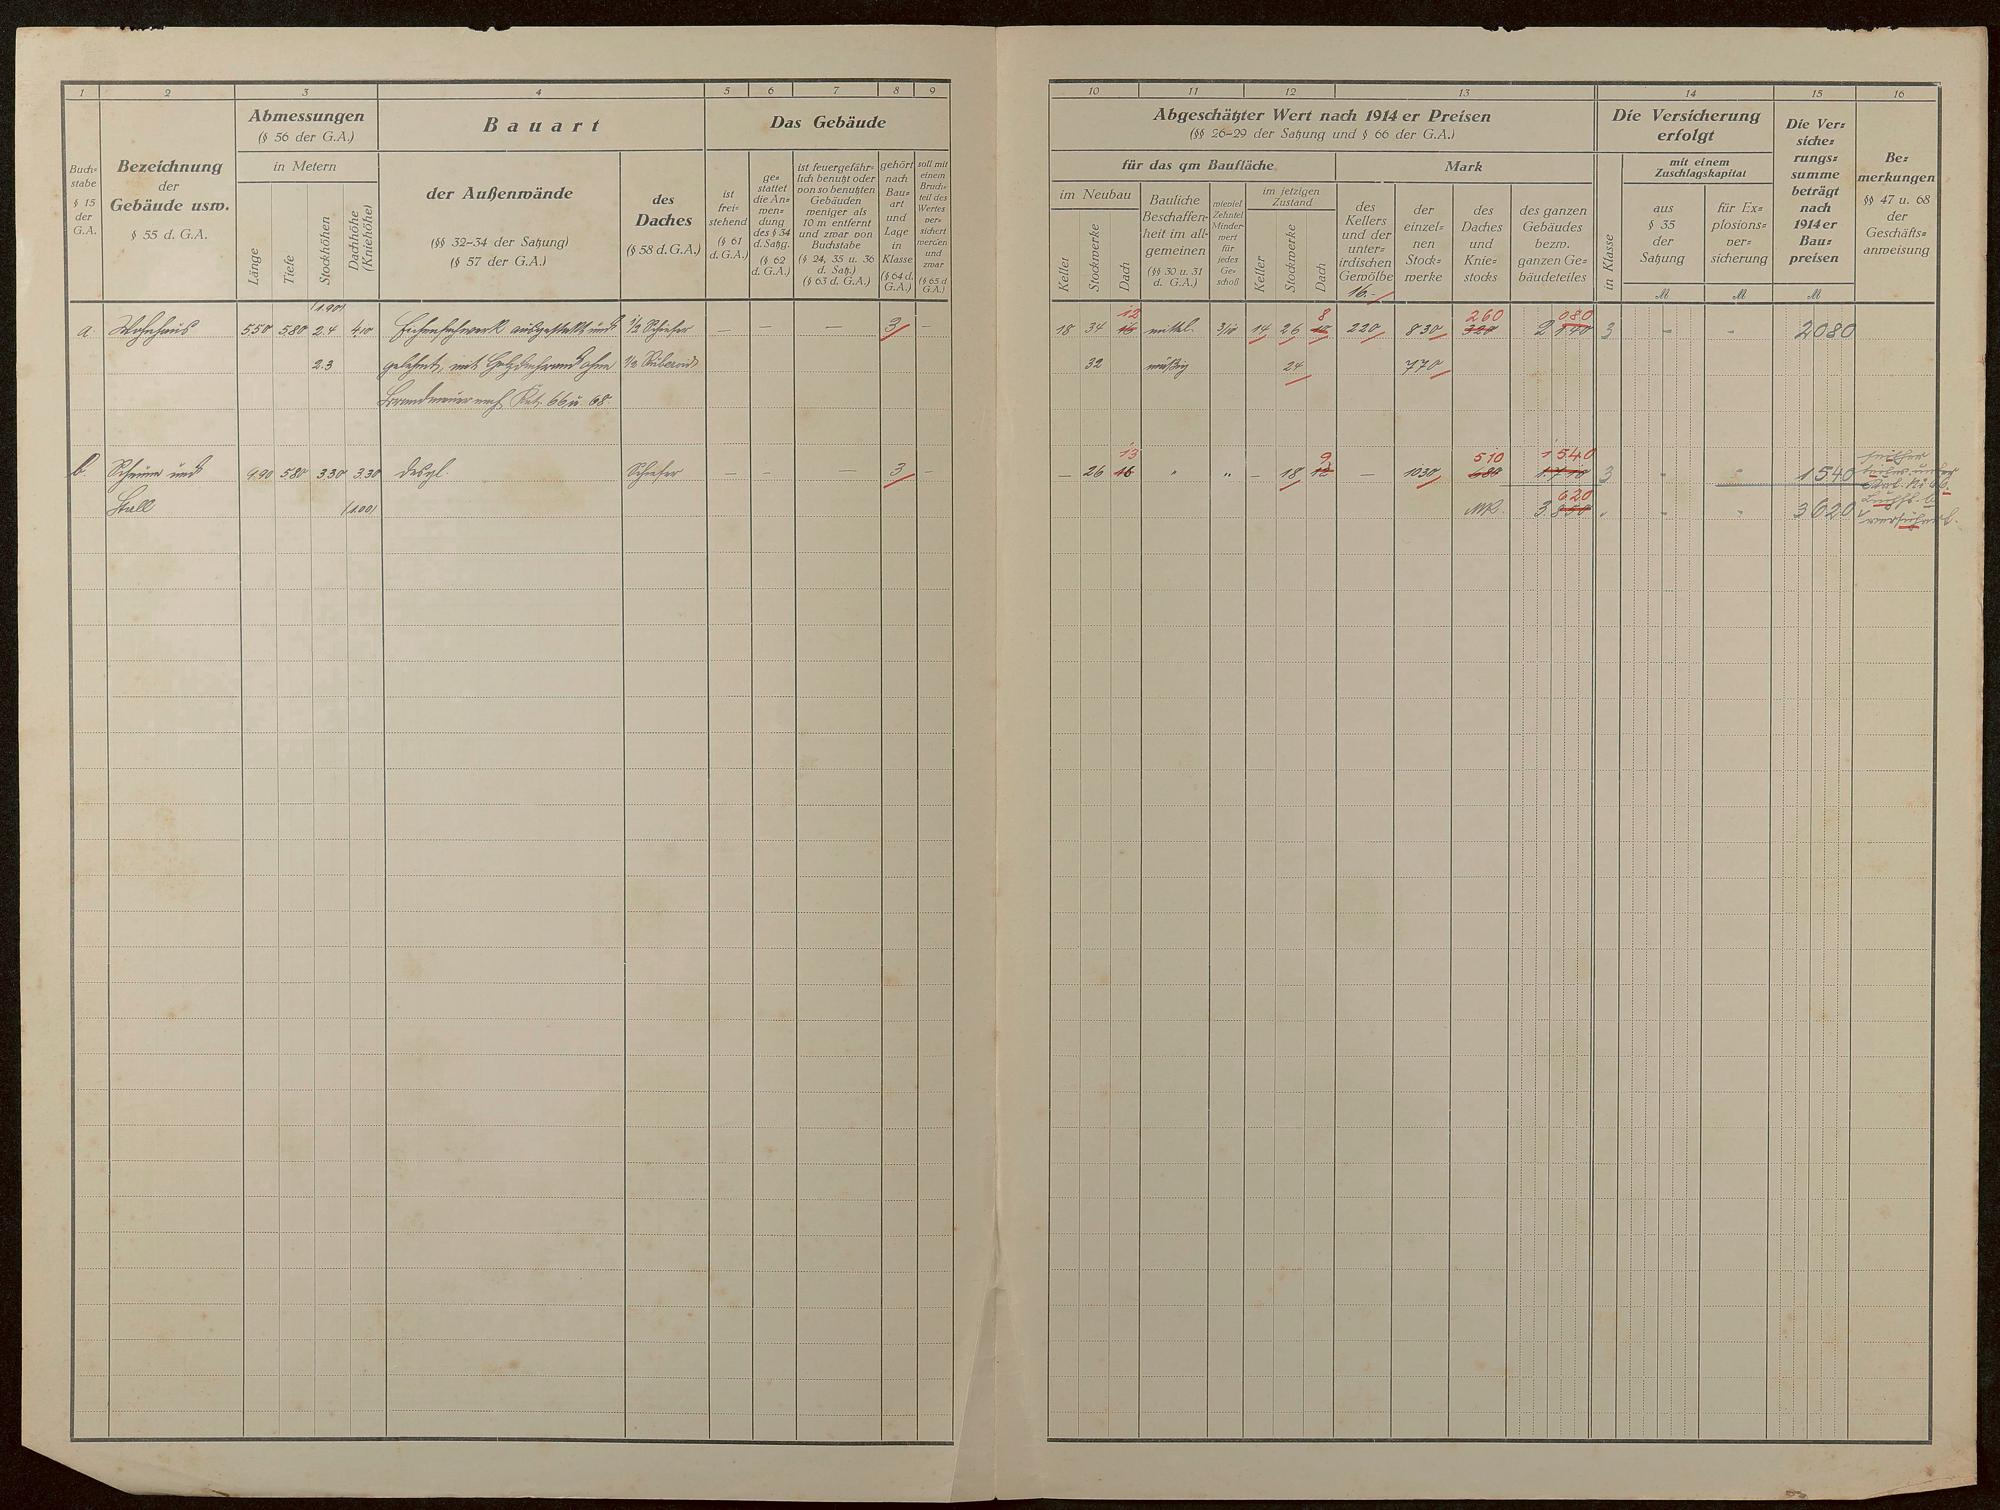 1 2 3 4 5 6 7 8 9
Abmessungen
(§ 56 der G.A.)
Bauart
Das Gebäude
Buch=
stabe
§ 15
der
G.A.
Bezeichnung
der
Gebäude usw.
§ 55 d. G.A.
in Metern
Länge
Tiefe
Stockhöhen
Dachhöhe
(Kniehöhe)
der Außenwände
(§§ 32-34 der Satzung)
(§ 57 der G.A.)
des
Daches
(§ 58 d. G.A.)
ist
frei=
stehend
(§ 61
d. G.A.)
ge=
stattet
die An=
wen=
dung
des § 34
d. Satzg.
(§ 62
d. G.A.)
ist feuergefähr=
lich benutzt oder
von so benutzten
Gebäuden
weniger als
10 m entfernt
und zwar von
Buchstabe
(§ 24, 35 u. 36
d. Satz.)
(§ 63 d. G.A.)
gehört
nach
Bau=
art
und
Lage
in
Klasse
(§ 64 d.
G.A.)
soll mit
einem
Bruch=
teil des
Wertes
ver=
sichert
werden
und
zwar
(§ 65 d.
G.A.)
(1.90)
a. Wohnhaus 5.50 5.80 2.4 4.10 Eichenfachwerk ausgestellt und 1/2 Schiefer — — — 3 —
2.3 gelehmt, mit Holzdrehwand ohne 1/2 Ruberoid
Brandmauer nach Kat. 66 u. 68.
b Scheune und 9.90 5.80 3.30 3.30 desgl. Schiefer — — — 3 —
Stall (1.00)
10 11 12 13 14 15 16
Abgeschätzter Wert nach 1914 er Preisen
(§§ 26-29 der Satzung und § 66 der G.A.)
für das qm Baufläche
Mark
im Neubau
Keller
Stockwerke
Dach
Bauliche
Beschaffen=
heit im all=
gemeinen
(§§ 30 u. 31
d. G.A.)
wieviel
Zehntel
Minder=
wert
für
jedes
Ge=
schoß
im jetzigen
Zustand
Keller
Stockwerke
Dach
des
Kellers
und der
unter=
irdischen
Gewölbe
16.-
der
einzel=
nen
Stock=
werke
des
Daches
und
Knie=
stocks
des ganzen
Gebäudes
bezw.
ganzen Ge=
bäudeteiles
Die Versicherung
erfolgt
in Klasse
mit einem
Zuschlagskapital
aus
§ 35
der
Satzung
M
für Ex=
plosions=
ver=
sicherung
M
Die Ver=
siche=
rungs=
summe
beträgt
nach
1914 er
Bau=
preisen
M
Be=
merkungen
§§ 47 u. 68
der
Geschäfts=
anweisung
12 8 260 080
18 34 16 mittl. 3/10 14 26 12 220 830 320 2 140 3 - - 2080
32 mäßig 24 770
13 9 510 1 540
— 26 16 " " — 18 12 — 1030 680 1.710 3 - - 1540
620
MK. 3.850 - - 3620